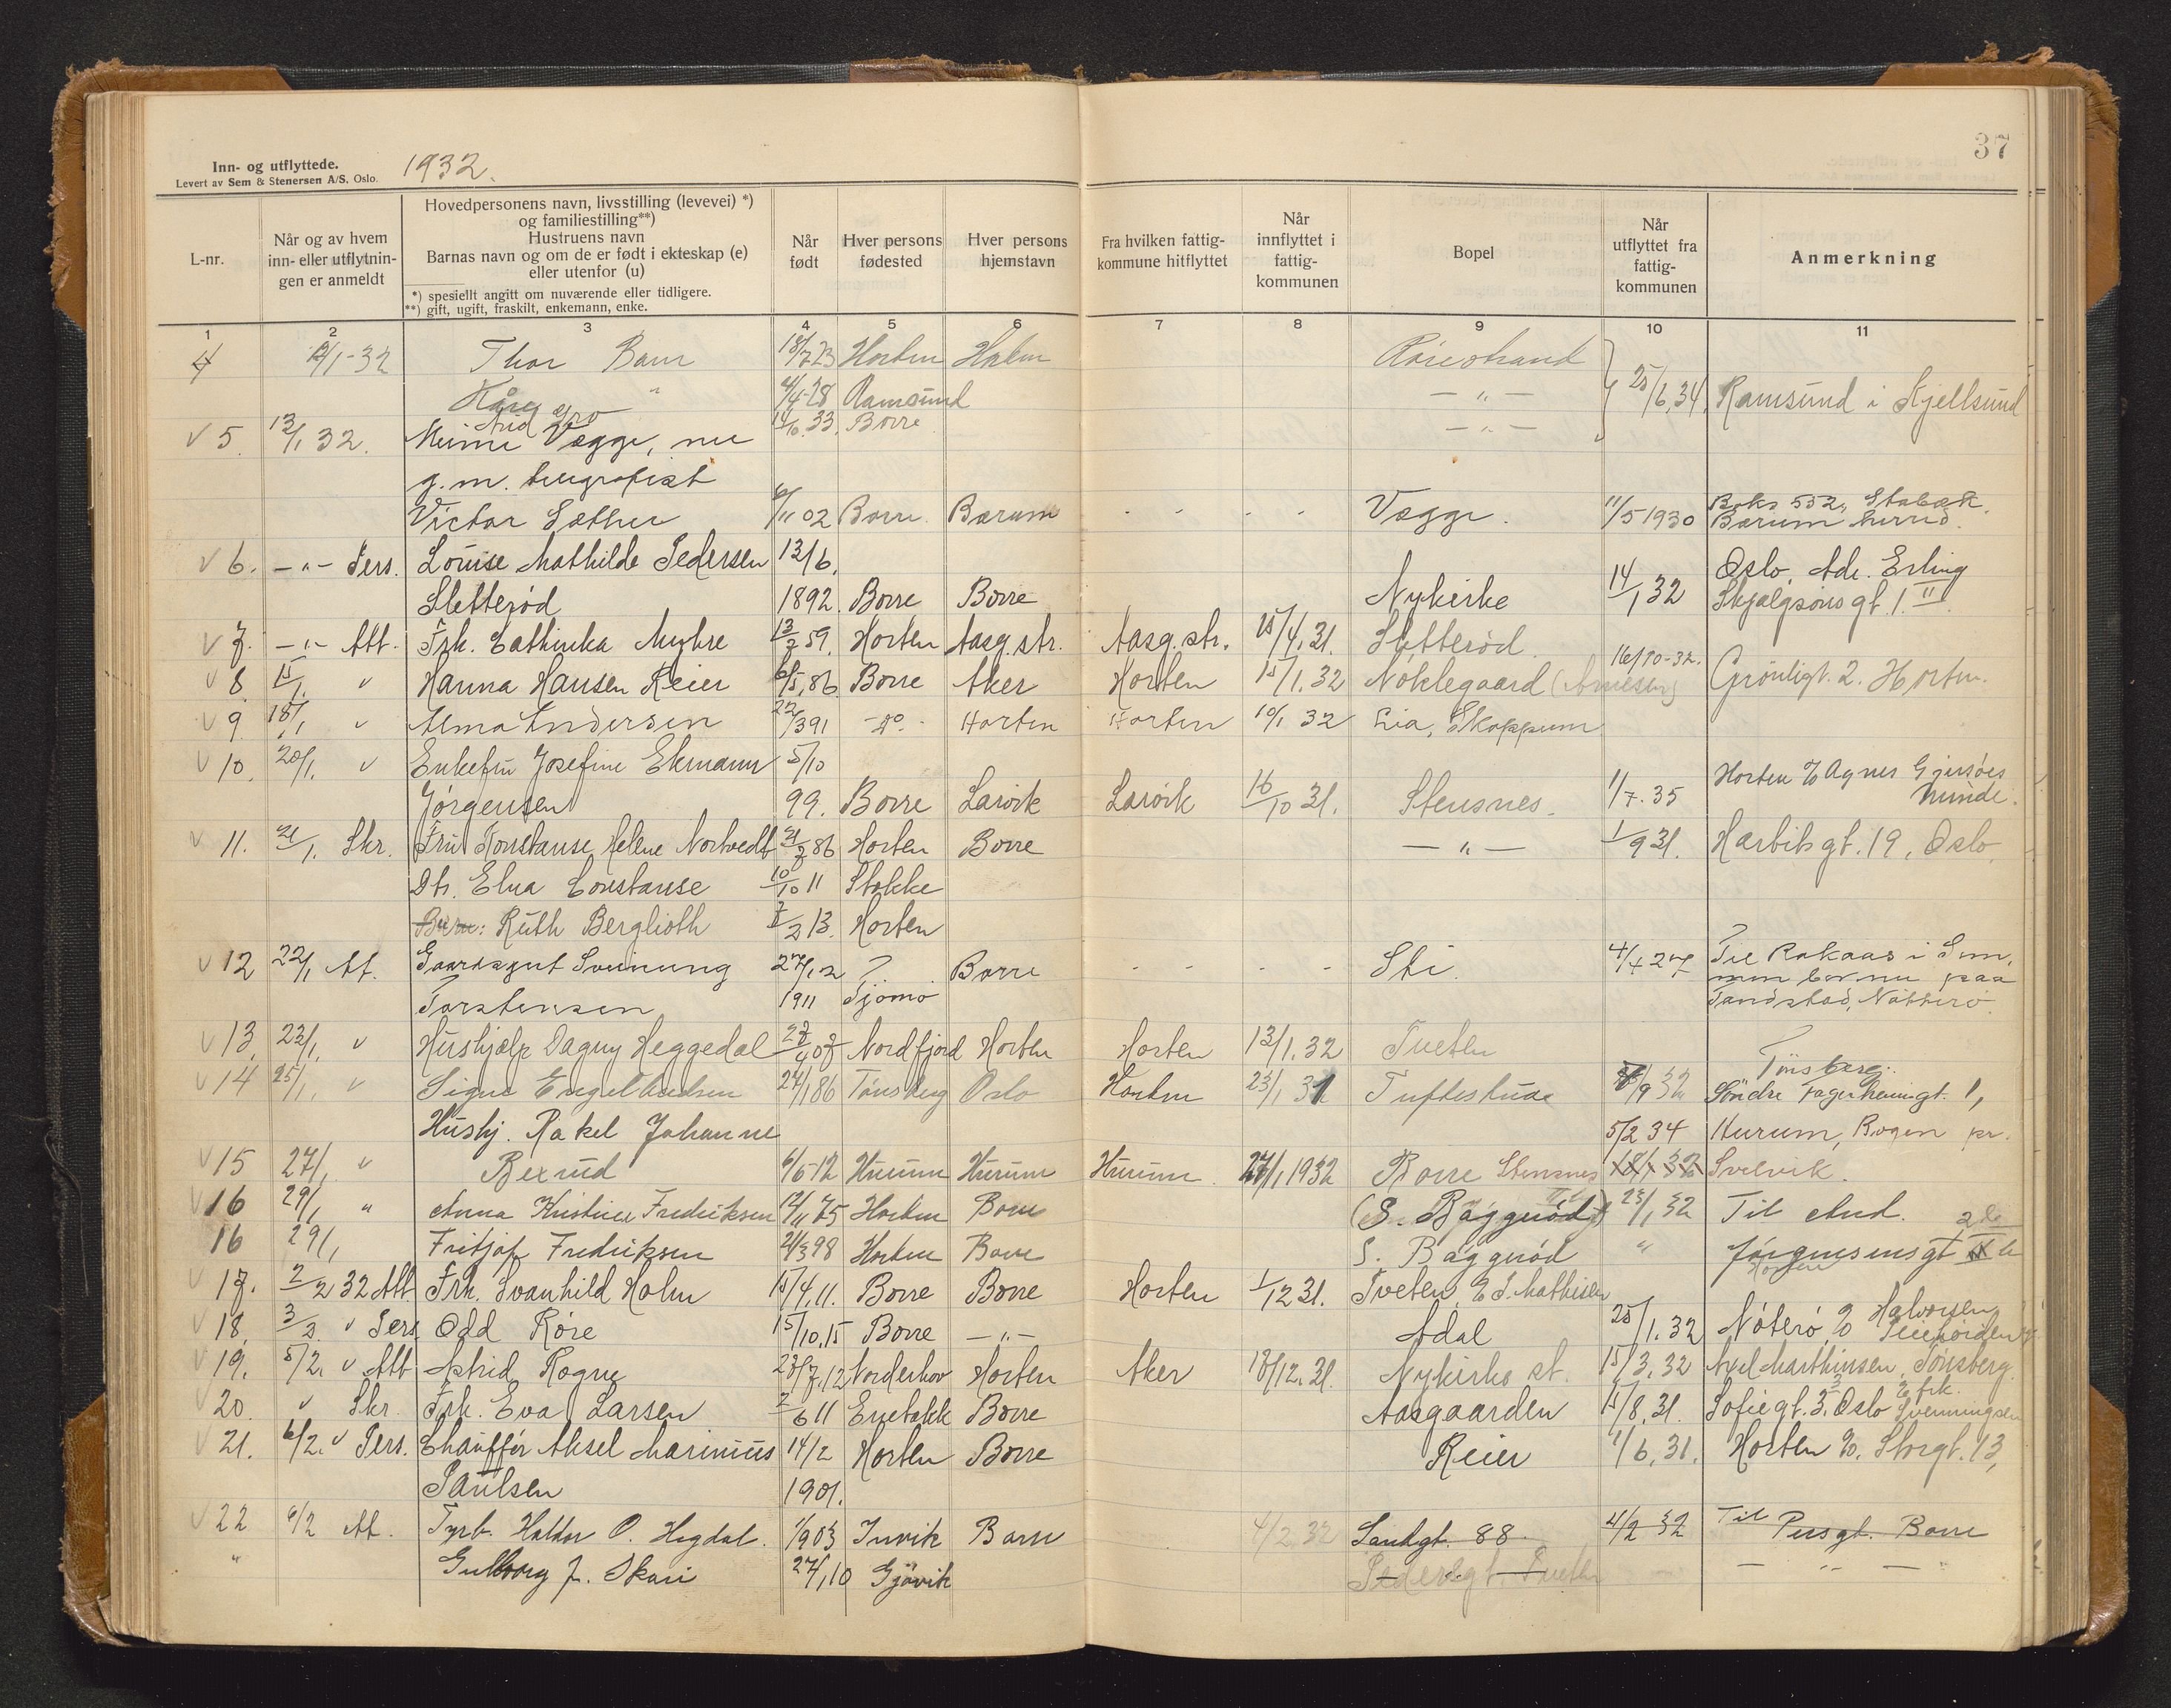 37
Inn- og utflyttede. 1932.
Levert av Sem & Stenersen A/S. Oslo.
L-nr.
Når og av hvem inn- eller utflytnin-gen er anmeldt
Hovedpersonens navn, livsstilling (levevei) *)
og familiestilling**)
Hustruens navn
Barnas navn og om de er født i ekteskap (e)
eller utenfor (u)
*) spesiellt angitt om nuværende eller tidligere.
**) gift, ugift, fraskilt, enkemann, enke.
Når født
Hver persons fødested
Hver persons hjemstavn
Fra hvilken fattig-kommune hitflyttet
Når innflyttet i fattig-kommunen
Bopel
Når utflyttet fra fattig-kommunen
Anmerkning
1 2 3 4 5 6 7 8 9 10 11
4 /1-32 Thor 18/7 23 Horten Holm Rörestrand
Kåre " 4/4-28 Ramsund — " — 25/6.34. Ramsund i Kjellsund
Gro 33. Borre — " —
√ 5. 13/1 32. Vegge, nu
g.m. telegrafist
Victor Sether 6/11 02 Borre. Bærum - - - - Vegge. 11/5 1930 Boks 552, Stabæk, Bærum herred.
√ 6. — " — Pers. Louise Mathilde Pedersen 13/6.
Sletterød 1892. Borre Borre Nykirke 14/1 32 Oslo. Adr. Erling Skjalgsons gt. 1 II
√ 7. — " — Att. Frk. Cathinka Myhre 13/2 59. Horten Aasg. str. Aasg. str. 15/4.31. Sletterød.
√ 8. 15/1. " Hanna Hansen Reier 6/5.86 Borre Aker Horten 15/1.32 Noklegaard (Arnesen) 16/10-32. Grønligt. 2. Horten.
√ 9. 18/1 " Alma Andersen 22/3 91 - do - Horten Horten 10/1 32 Lia, Skoppum
√ 10. 20/1. " Enkefru Josefine Ekmann 5/10
Jørgensen 99. Borre Larvik Larvik 16/10 31. Stensnes. 1/7.35 Horten c/o Agnes
√ 11. 21/1. Skr. Fru Konstanse Helene Nortvedt 21/2 86 Horten Borre — " — 1/9 31. Harbitsgt. 19, Oslo.
Dtr. Elna Constanse 10/10 11 Stokke
Barn: Ruth Berglioth 7/2 13. Horten
√ 12 22/1 At. Gaardsgut Sveinung 27/12 ? Borre - - - - Sti. 4/4 27 Til Rakaas i Sem,
Torstensen 1911 Tjömo men bor nu paa
Tandstad, Nötterö.
√ 13. 23/1. " Hushjælp Dagny Heggedal 27/4 07 Nordfjord Horten Horten 13/1.32 Tveten
√ 14 25/1. " Signe Engelbretsen 24/1 86 Tønsberg Oslo Horten 23/1 31 Tuftestua /9 32 Tönsberg. Söndre Fagerheimgt. 1,
Hushj. Rakel Johanne 5/2 34 Hurum, Bogen pr.
√ 15 27/1 " Rexrud 6/6-12 Hurum Hurum Hurum 27/1 1932 Borre Stensnes 18/1 32 Svelvik.
√ 16 29/1 " Anna Kristine Fredriksen 12/11 75 Horten Borre (S. Baggerød) 23/1 32 Til And.
16 29/1 Fritjof Fredriksen 21/3 98 Horten Borre S. Baggerød " Jörgensensgt
√ 17. 2/2 32 Att Frk. Svanhild Holm 15/4.11. Borre Borre Horten 1/12 31. Tveten, E. J. Mathisen
√ 18. 3/2. " Pers Odd Röre 15/10.15 Borre — " — Adal 25/1.32 Nöterö c/o Halvorsen
√ 19. 5/2. " Att Astrid Rogne 23/7.12 Norderhov Horten Aker 18/12.31. Nykirke st. 15/3.32 Axel Marthinsen, Tönsberg.
√ 20 " Skr. Frk. Eva Larsen 2/6 11 Enebakk Borre Aasgaarden 15/8.31. Sofiegt. 3. Oslo c/o frk. Svenningsen
√ 21. 6/2. " Pers. Chauffør Aksel Marinius 14/2 Horten Borre Reier 1/6.31. Horten c/o. Storgt. 13,
Paulsen 1901.
√ 22 6/2 At. Fyrb. Haldor O. Hegdal. 1/9 03 Invik Borre 4/2 32 Sandgt. 88. 4/2 32 Til Persgt. Borre
" Gulborg f. Skari 27/1 10 Gjövik Pedersgt. Tveten — " — "